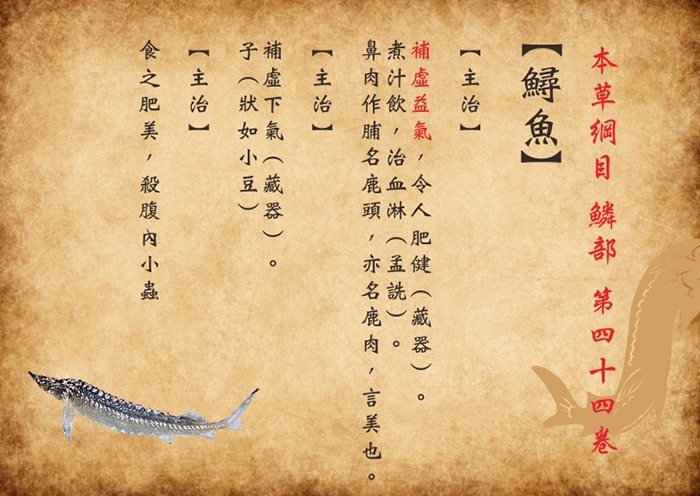 本草綱目 鱗部 第四十四卷
【鱘魚】
【主治】
補虛益氣，令人肥健（藏器）。
煮汁飲，治血淋（孟詵）。
鼻肉作脯名鹿頭，亦名鹿肉，言美也。
【主治】
補虛下氣（藏器）。
子（狀如小豆）
【主治】
食之肥美，殺腹內小蟲